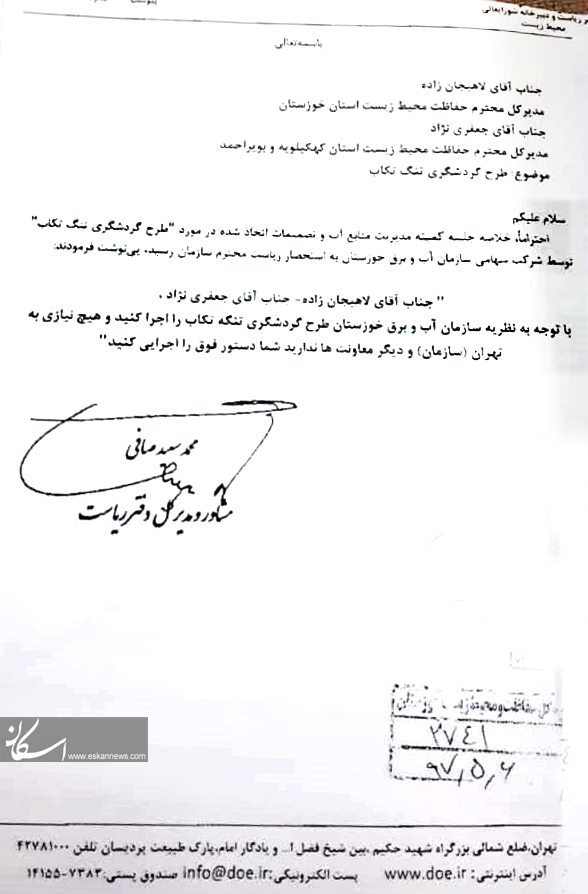 پیوست
ریاست و دبیرخانه شورایعالی
محیط زیست
باسمه‌تعالی
جناب آقای لاهیجان زاده
مدیرکل محترم حفاظت محیط زیست استان خوزستان
جناب آقای جعفری نژاد
مدیرکل محترم حفاظت محیط زیست استان کهکیلویه و بویراحمد
موضوع: طرح گردشگری تنگ تکاب
سلام علیکم
احتراماً، خلاصه جلسه کمیته مدیریت منابع آب و تصمیمات اتخاذ شده در مورد "طرح گردشگری تنگ تکاب"
توسط شرکت سهامی سازمان آب و برق خوزستان به استحضار ریاست محترم سازمان رسید. پی‌نوشت فرمودند:
" جناب آقای لاهیجان زاده- جناب آقای جعفری نژاد ،
با توجه به نظریه سازمان آب و برق خوزستان طرح گردشگری تنگه تکاب را اجرا کنید و هیچ نیازی به
تهران (سازمان) و دیگر معاونت ها ندارید شما دستور فوق را اجرایی کنید"
محمد سعید صافی
مشاور و مدیرکل دفتر ریاست
کل حفاظت محیط زیست
۲۷۴۱
۹۷,۵,۶
اسکانیوز
www.eskannews.com
تهران،ضلع شمالی بزرگراه شهید حکیم ،بین شیخ فضل ا... و یادگار امام،پارک طبیعت پردیسان تلفن ۴۲۷۸۱۰۰۰
آدرس اینترنتی: www.doe.ir پست الکترونیکی:info@doe.ir صندوق پستی:۷۳۸۳-۱۴۱۵۵